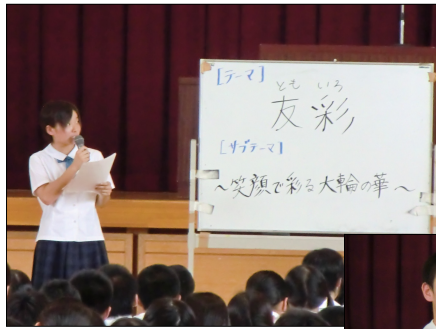 [テーマ]
とも いろ
友彩
[サブテーマ]
～笑顔で彩る大輪の華～